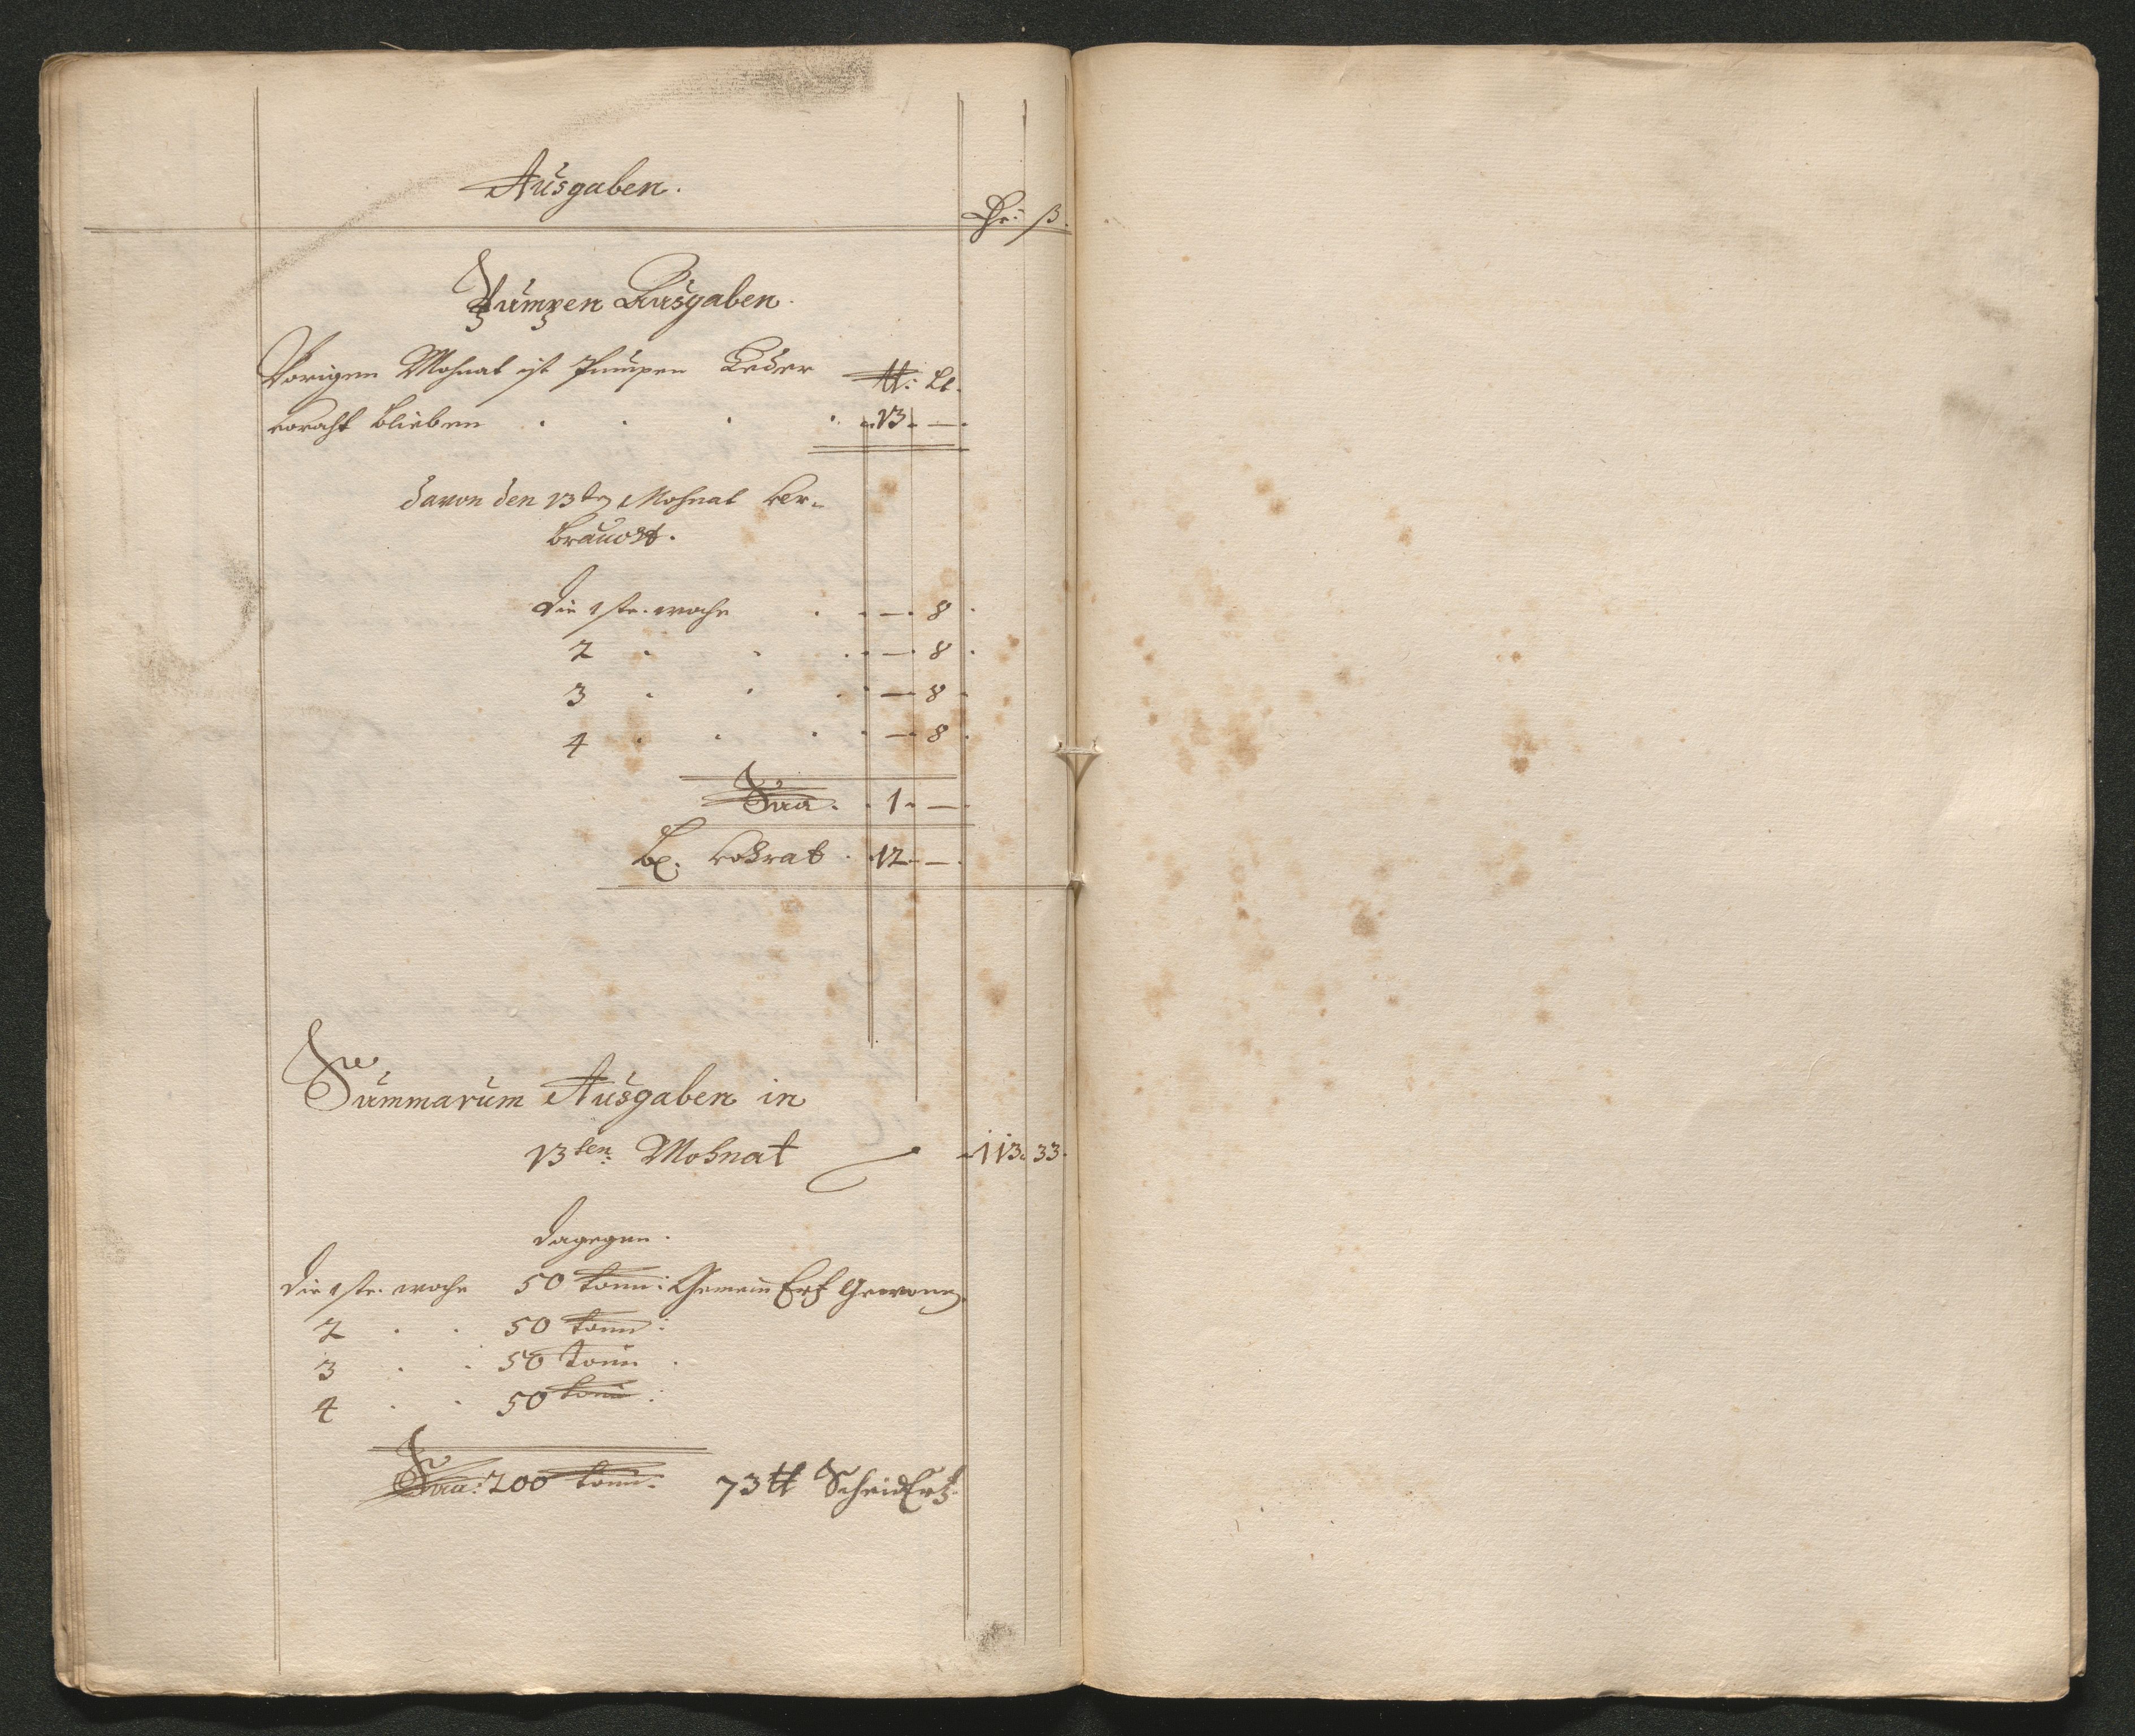 Ausgaben.
Thr: ß.
Pumpen Ausgaben.
Vorigen Mohnat ist Pumpen Leder ℔: Lt.
voraht blieben . . . . 13. —.
davon den 13ten Mohnat ver-
braucht.
Die 1ste. woche . . — . 8 .
2 . . . — . 8 .
3 . . . — . 8 .
4 . . . — . 8 .
Sūa. . 1. —.
bl: vohrat . 12. —.
Summarum Ausgaben in
13ten: Mohnat 113. 33.
Dagegen.
Die 1ste. woche 50 tonn: Gemein Ertz Gewonn
2 . . 50 tonn:
3 . . 50 tonn .
4 . . 50 tonn:
Sūa: 200 tonn: 73 ℔ ScheidErtz.